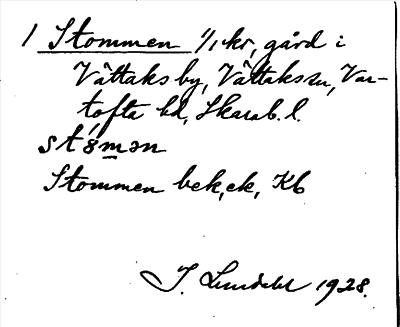 1 Stommen 1/1 kr, gård i
Vättaks by, Vättaks sn, Var-
tofta hd, Skarab. l.
Stommen bek, ek, Kb
1928.